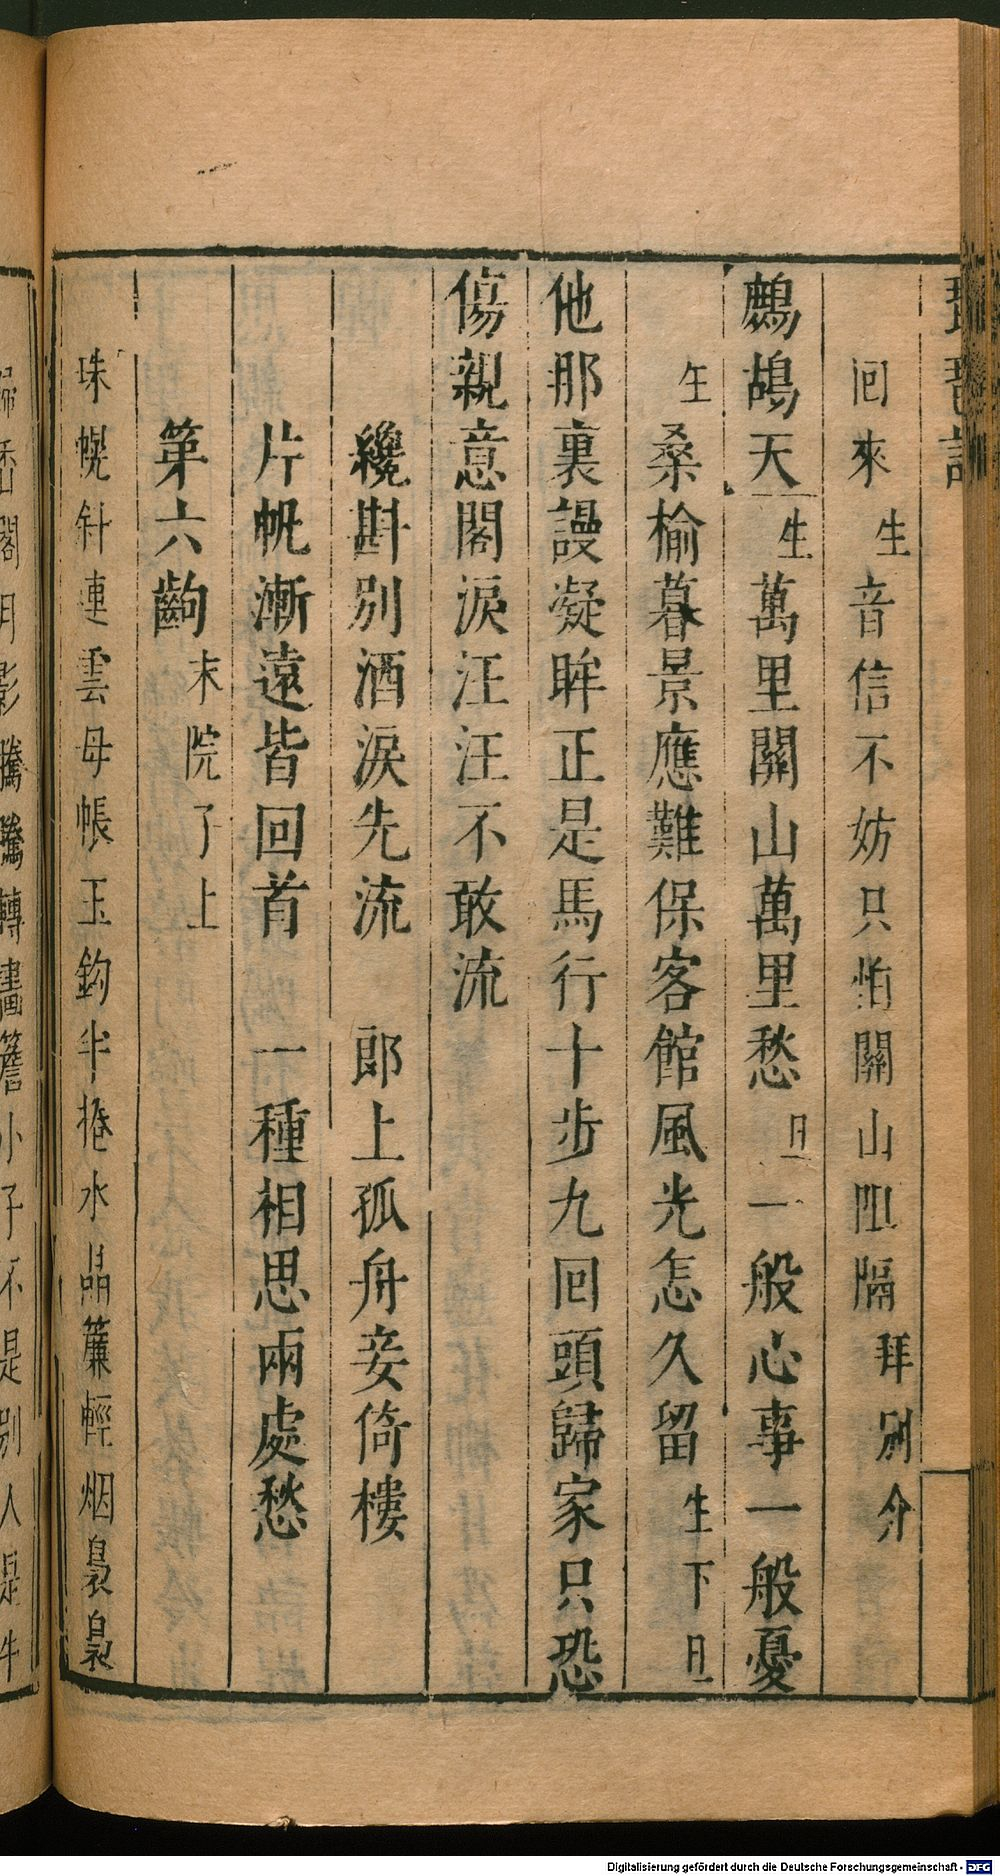 琵琶記
囘來 生 音信不妨只怕關山阻隔 拜別介
鷓鴣天 生 萬里關山萬里愁 旦 一般心事一般憂
生 桑榆暮景應難保客館風光怎久留 生下 旦
他那裏謾凝眸正是馬行十步九回頭歸家只恐
傷親意閣淚汪汪不敢流
纔斟別酒淚先流 郎上孤舟妾倚樓
片帆漸遠皆回首 一種相思兩處愁
第六齣 末院子上
珠幌斜連雲母帳玉鈎半捲水晶簾輕烟裊裊
歸香閣月影騰騰轉畫簷小子不是別人是牛
Digitalisierung gefördert durch die Deutsche Forschungsgemeinschaft - DFG